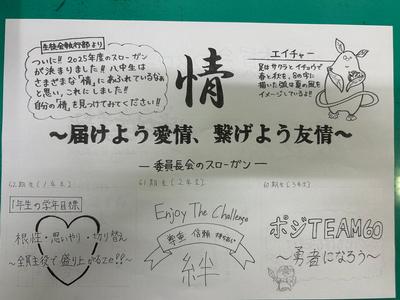 生徒会執行部より
ついに!! 2025年度のスローガン
が決まりました!! 八中生は
さまざまな「情」にあふれているなぁ
と思い、これにしました!!
自分の「情」を見つけてみてください!!
情
エイチャー
足はサクラとイチョウで
春と秋を、
夏の風を
イメージしているよ!!
〜届けよう愛情、繋げよう友情〜
―委員長会のスローガン―
62期生(1年生)
1年生の学年目標
根性・思いやり・切り替え
〜全員主役で盛り上がるこの!!〜
61期生(2年生)
Enjoy The Challenge
学業 信頼
絆
60期生(3年生)
ポジTEAM60
〜勇者になろう〜